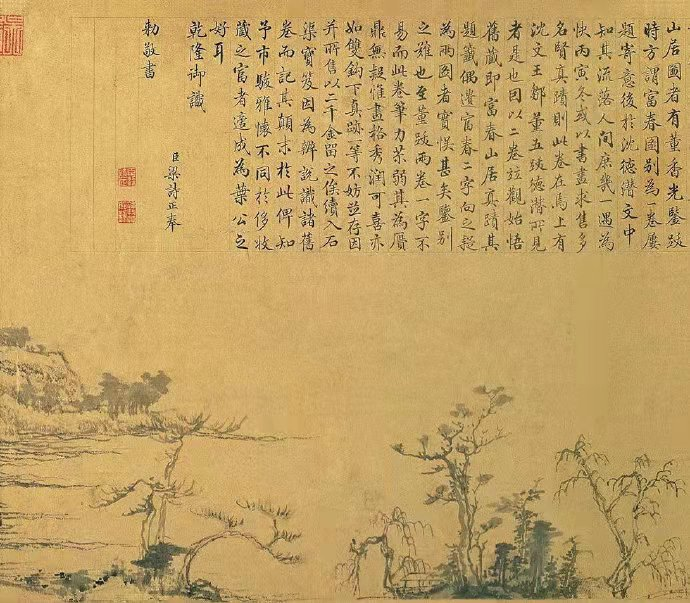 山居圖者有董香光鑒跋
時方謂富春圖別為一卷屢
題寄意後於沈德潛文中
知其流落人間庶幾一遇為
快丙寅冬或以書畫求售多
名賢真蹟則此卷在焉上有
沈文王鄒董五跋德潛所見
者是也因以二卷並觀始悟
舊藏即富春山居真蹟其
題籤偶遺富春二字向之疑
為兩圖者實悞甚矣鑒別
之難也至董跋兩卷一字不
易而此卷筆力苶弱其為贗
鼎無疑惟畫格秀潤可喜亦
如雙鈎下真跡一等不妨並存因
并所售以二千金留之俟續入石
渠寶笈因為辨說識諸舊
卷而記其顛末於此俾知
予市駿雅懷不同於侈收
藏之富者遽成為葉公之
好耳
乾隆御識
臣梁詩正奉
勅敬書